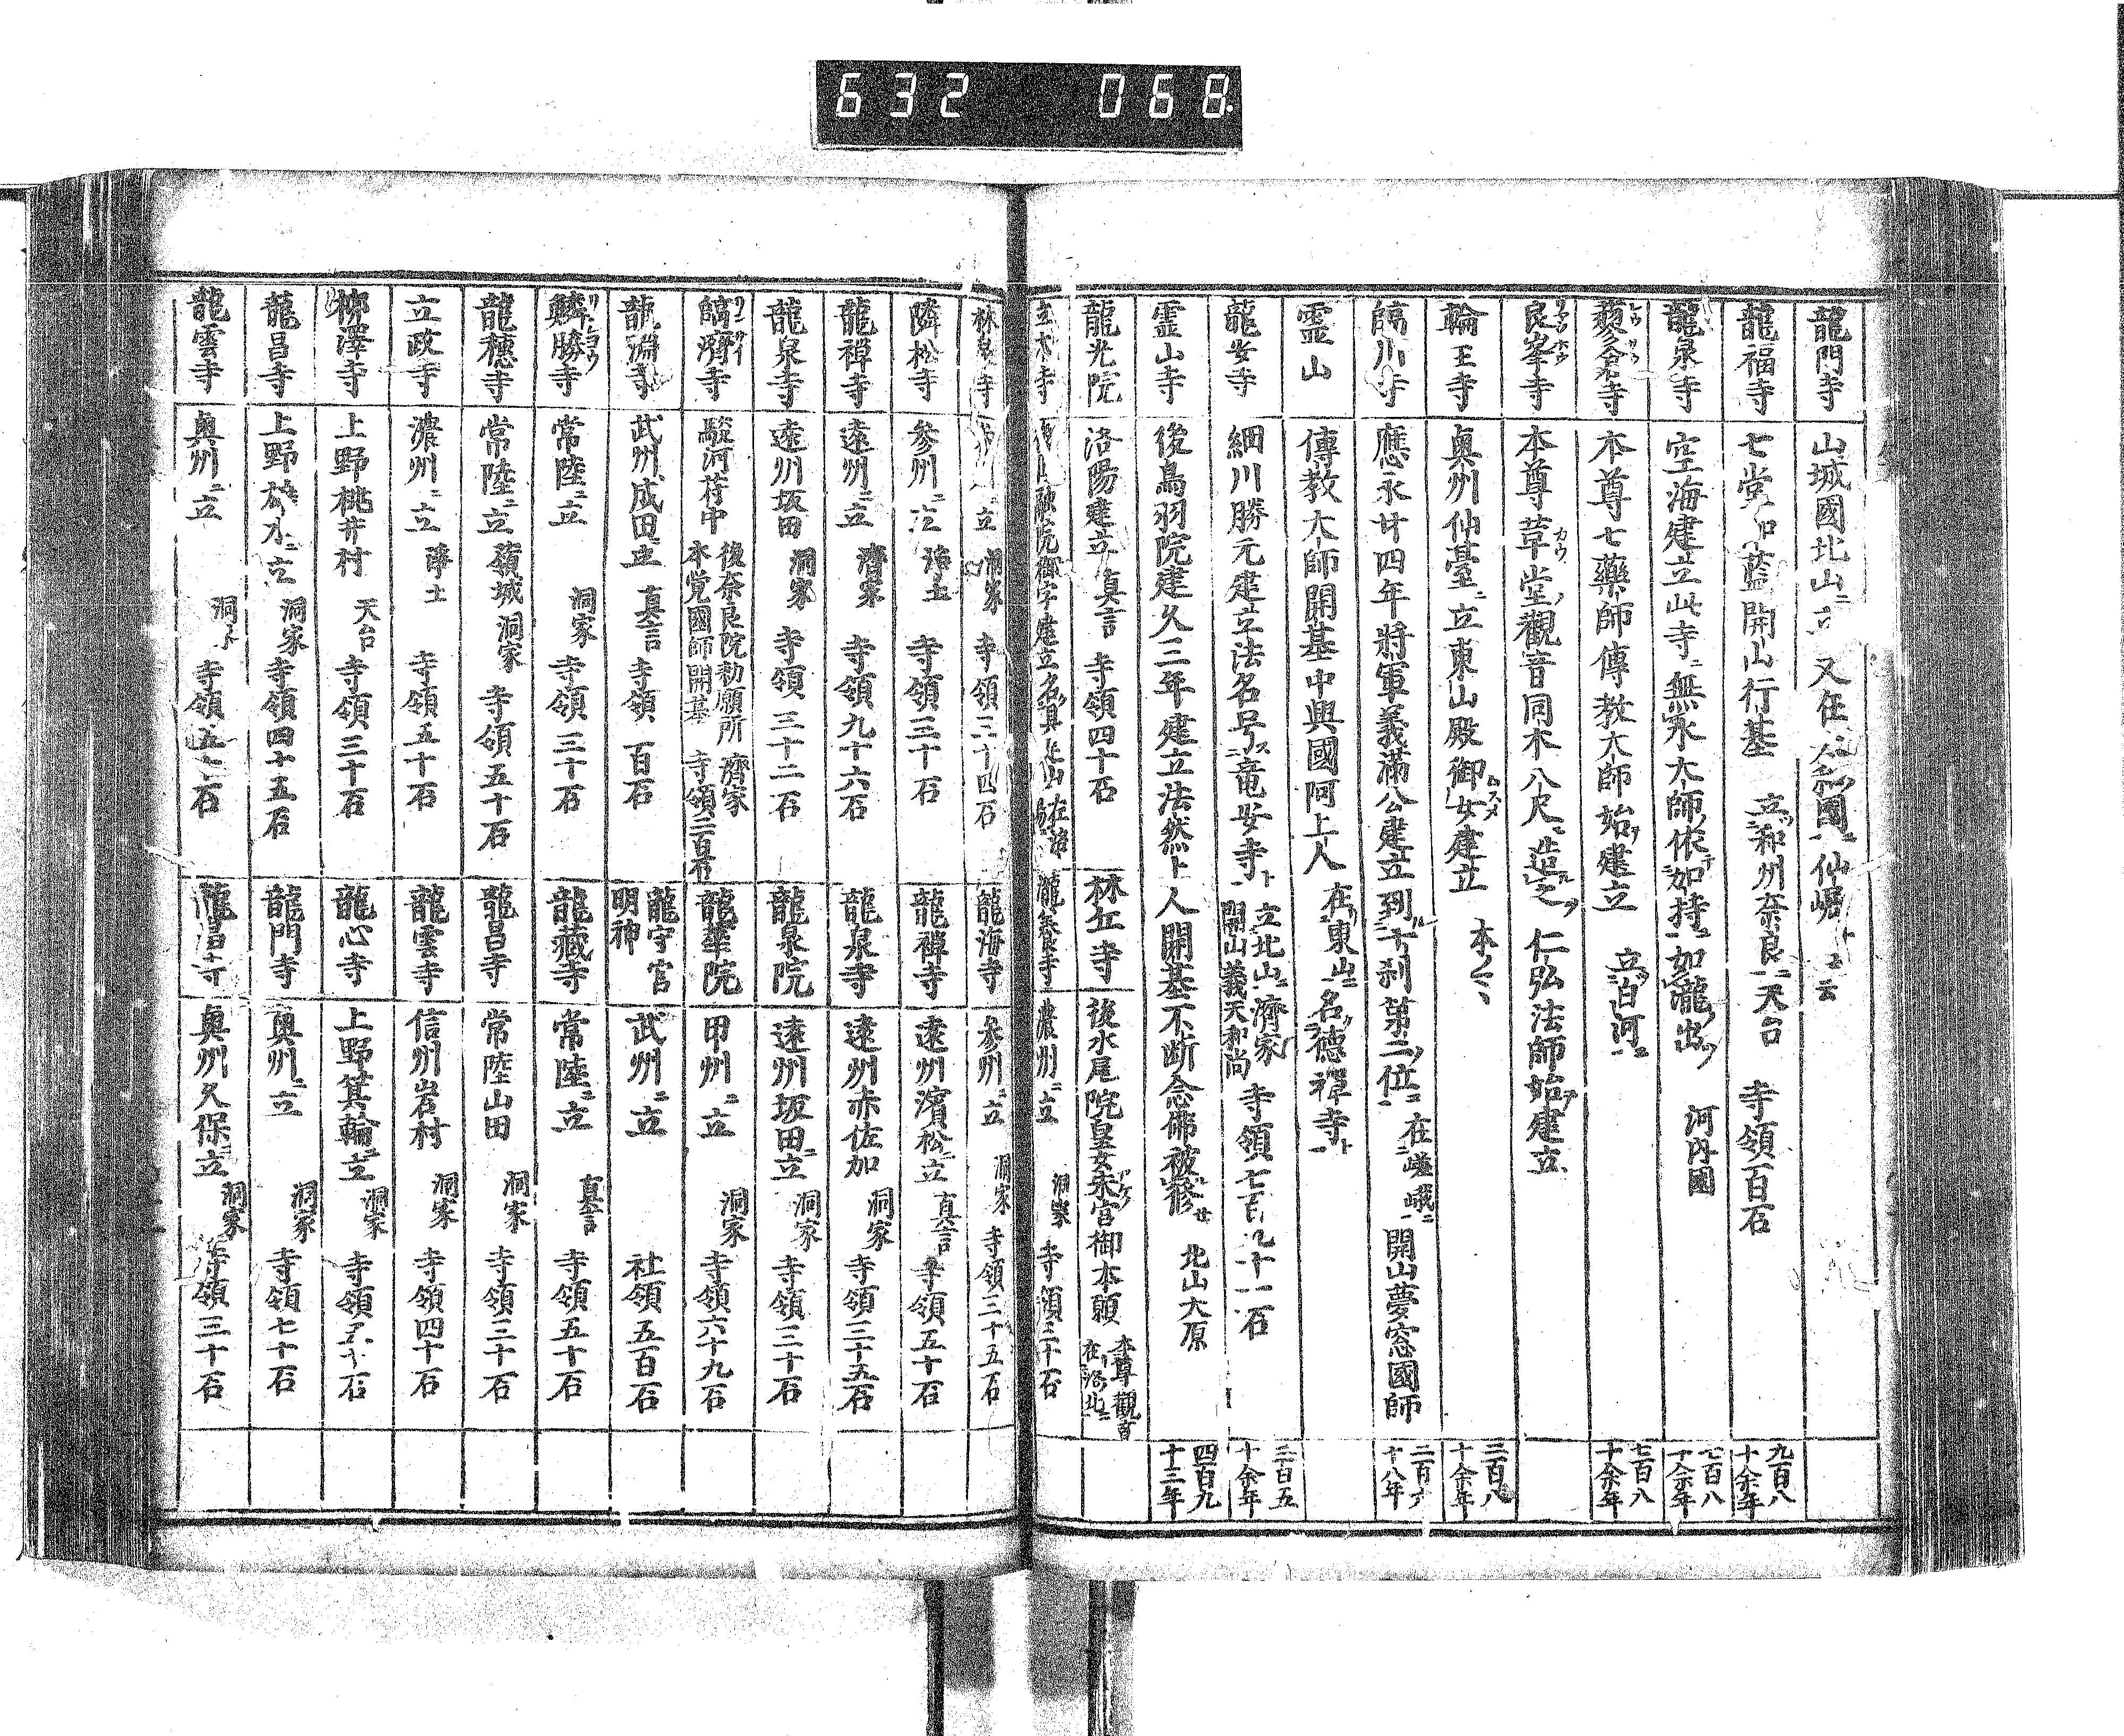 632 068
龍門寺 山城國北山ニ立 又在 和國ニ 仙崛ト云云
龍福寺 七堂伽藍開山行基 立和州奈良ニ 天台 寺領百石 九百八十余年
龍泉寺 空海建立此寺ニ無水大師依加持ニ加瀧出 河内國 七百八十余年
寺 本尊七藥師傳教大師始建立 立白河ニ 七百八十余年
良峯寺 本尊草堂觀音同木八尺ニ造之 仁弘法師始建立
輪王寺 奥州仙臺ニ立東山殿御女建立 本 二百八十余年
臨川寺 應永廿四年將軍義滿公建立到十刹第二位ニ 在嵯峨ニ 開山夢窓國師 二百六十八年
霊山 傳教大師開基中興國阿上人 在東山ニ 名德禪寺ト
龍安寺 細川勝元建立法名号ス竜安寺ト 立北山ニ濟家 開山義天和尚 寺領七百 十一石 二百五十余年
霊山寺 後鳥羽院建久三年建立法然上人開基不断念佛被修セ 北山大原 四百九十三年
龍光院 洛陽建立 真言 寺領四十石
林丘寺 後水尾院皇女朱宮御本願 本尊觀音 在洛北ニ
瀧泰寺 濃州ニ立 洞家 寺領三十石
林泉寺 立 洞家 寺領三十四石
龍海寺 参州ニ立 洞家 寺領三十五石
隣松寺 参州ニ立 淨土 寺領三十石
龍禅寺 遠州濱松ニ立 真言 寺領五十石
龍禅寺 遠州ニ立 濟家 寺領九十六石
龍泉寺 遠州赤佐加 洞家 寺領三十五石
龍泉寺 遠州坂田 洞家 寺領三十二石
龍泉院 遠州坂田ニ立 洞家 寺領三十石
臨濟寺 駿河苻中 後奈良院勅願所 濟家 本覚國師開基 寺領二百石
龍華院 甲州ニ立 洞家 寺領六十九石
龍淵寺 武州成田ニ立 真言 寺領百石
龍守宮明神 武州ニ立 社領五百石
鱗勝寺 常陸ニ立 洞家 寺領三十石
龍藏寺 常陸ニ立 真言 寺領五十石
龍穗寺 常陸ニ立 嶺城 洞家 寺領五十石
龍昌寺 常陸山田 洞家 寺領三十石
立政寺 濃州ニ立 淨土 寺領五十石
龍雲寺 信州岩村 洞家 寺領四十石
柳澤寺 上野桃井村 天台 寺領三十石
龍心寺 上野箕輪ニ立 洞家 寺領 十石
龍昌寺 上野 ニ立 洞家 寺領四十五石
龍門寺 奥州ニ立 洞家 寺領七十石
龍雲寺 奥州ニ立 洞家 寺領五十石
龍昌寺 奥州久保ニ立 洞家 寺領三十石